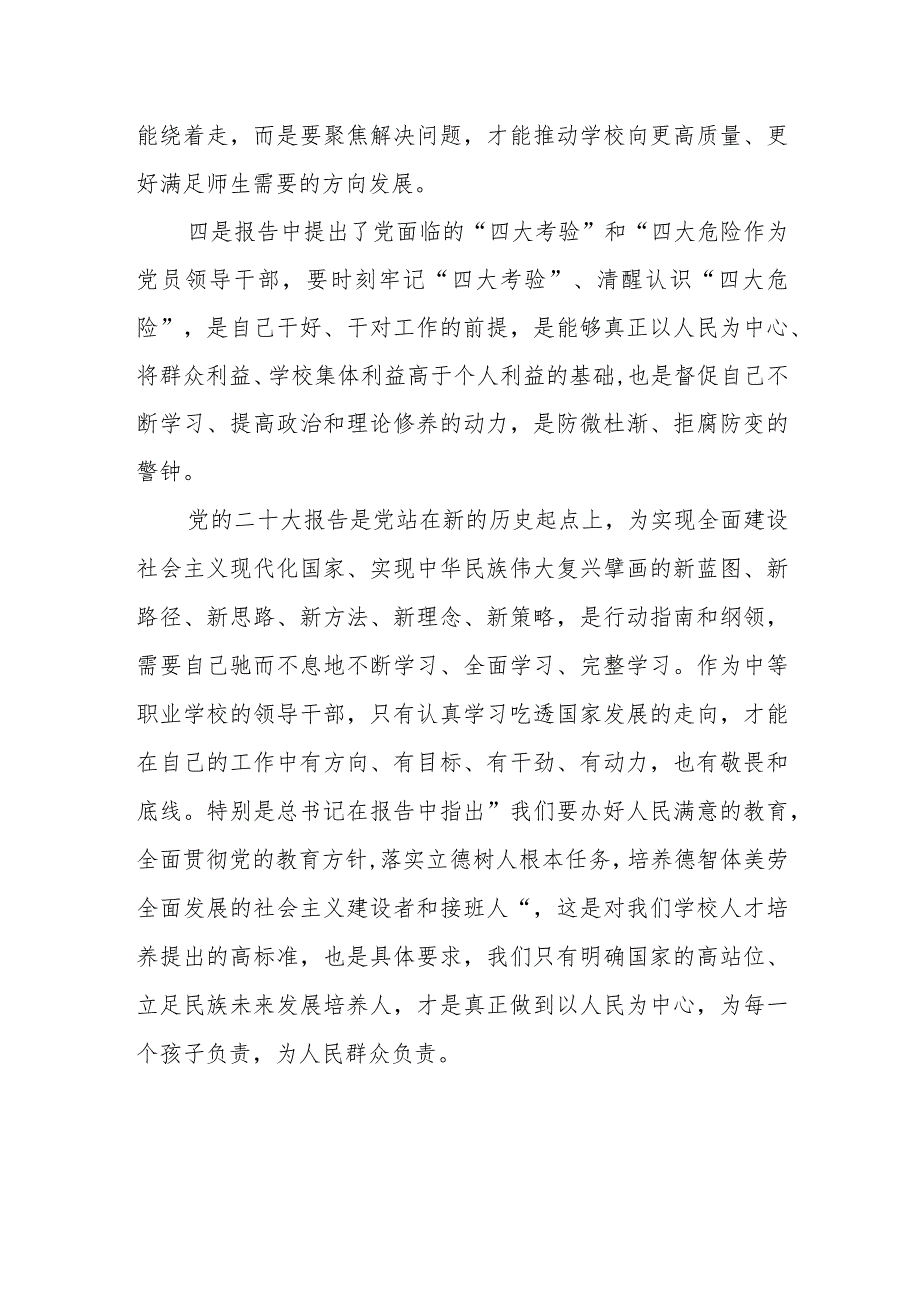 能绕着走，而是要聚焦解决问题，才能推动学校向更高质量、更
好满足师生需要的方向发展。
四是报告中提出了党面临的“四大考验”和“四大危险作为
党员领导干部，要时刻牢记“四大考验”、清醒认识“四大危
险”，是自己干好、干对工作的前提，是能够真正以人民为中心、
将群众利益、学校集体利益高于个人利益的基础,也是督促自己不
断学习、提高政治和理论修养的动力，是防微杜渐、拒腐防变的
警钟。
党的二十大报告是党站在新的历史起点上，为实现全面建设
社会主义现代化国家、实现中华民族伟大复兴擘画的新蓝图、新
路径、新思路、新方法、新理念、新策略，是行动指南和纲领，
需要自己驰而不息地不断学习、全面学习、完整学习。作为中等
职业学校的领导干部，只有认真学习吃透国家发展的走向，才能
在自己的工作中有方向、有目标、有干劲、有动力，也有敬畏和
底线。特别是总书记在报告中指出”我们要办好人民满意的教育，
全面贯彻党的教育方针,落实立德树人根本任务，培养德智体美劳
全面发展的社会主义建设者和接班人“，这是对我们学校人才培
养提出的高标准，也是具体要求，我们只有明确国家的高站位、
立足民族未来发展培养人，才是真正做到以人民为中心，为每一
个孩子负责，为人民群众负责。